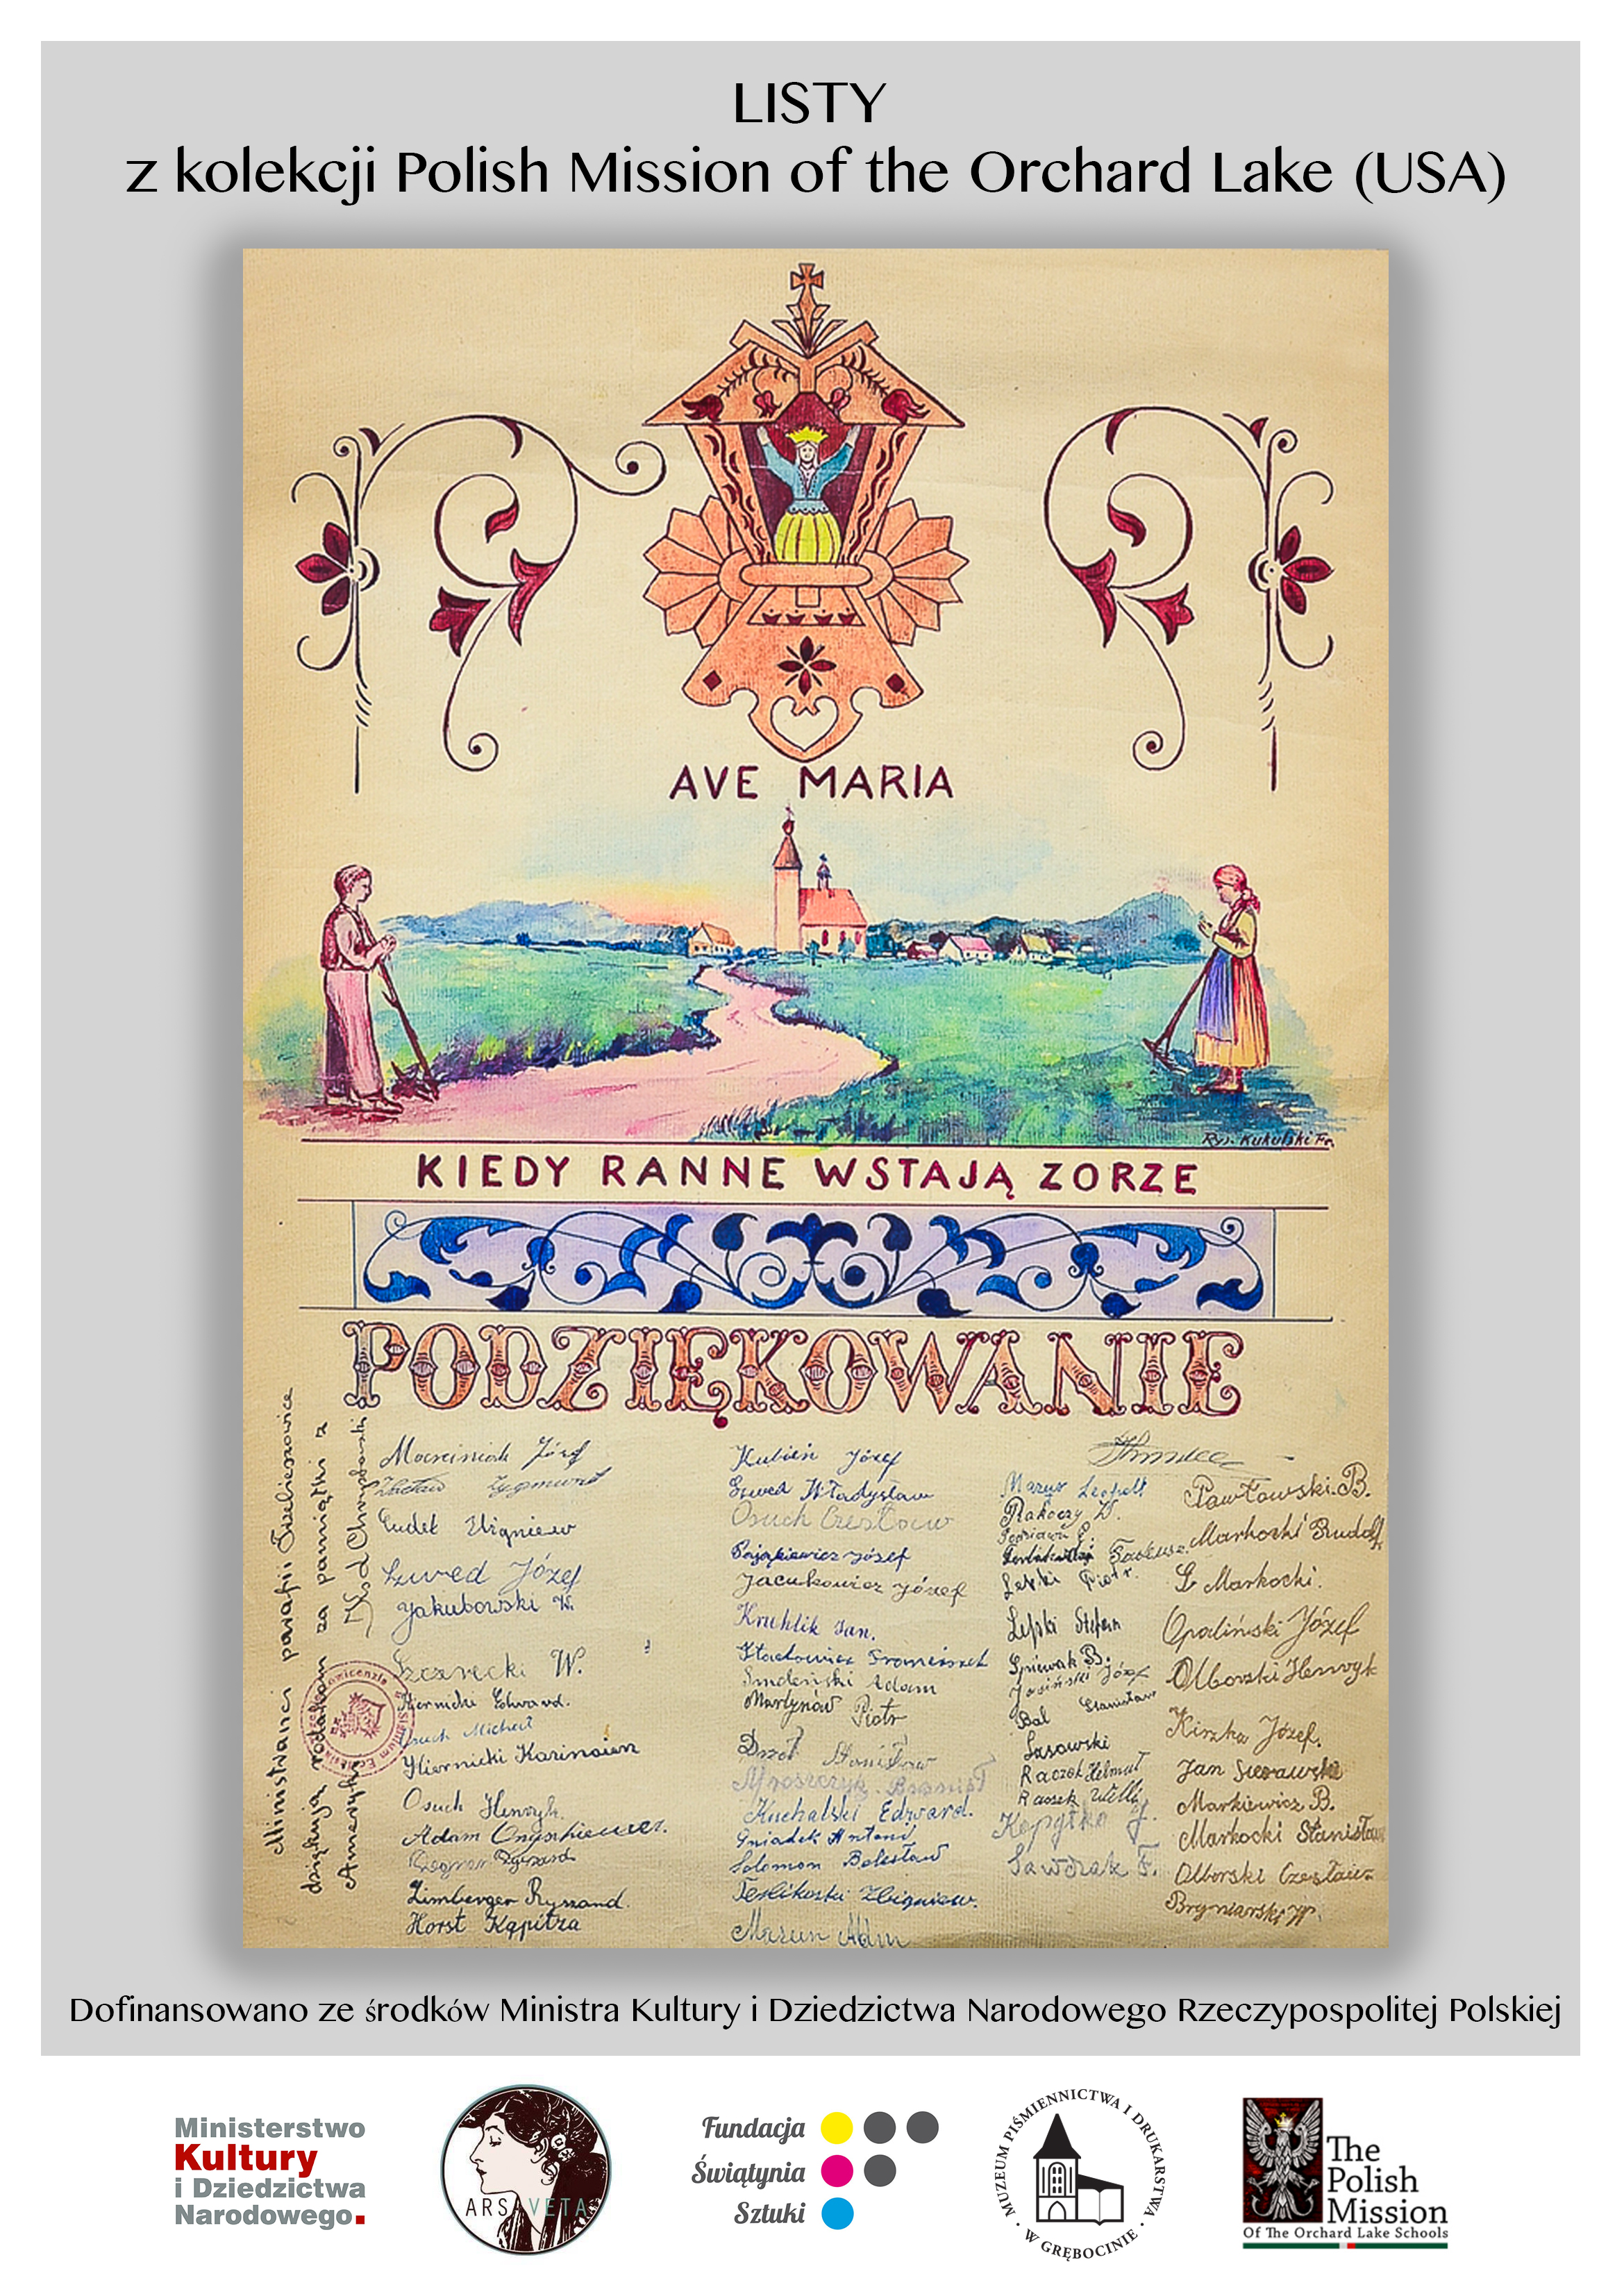 LISTY
z kolekcji Polish Mission of the Orchard Lake (USA)
AVE MARIA
Rys. Kukulski Fr.
KIEDY RANNE WSTAJĄ ZORZE
PODZIĘKOWANIE
Ministranci parafii
dziękują rodakom za pamiątki z
Ameryki
Józef
Zygmunt
Zbigniew
Szwed Józef
Jakubowski W.
W.
Edward.
Osuch Michał
Osuch Henryk.
Adam
Zimberger Ryszard.
Horst Kąpitza
Kubień Józef
Szwed Władysław
Osuch Czesław
Józef
Jacukowicz Józef
Kruhlik Jan.
Franciszek
Smoleński Adam
Martynów Piotr
Stanisław
Kuchalski Edward.
Gniadek Antoni
Solomon Bolesław
Zbigniew.
Leopold
Rakoczy W.
Tadeusz
Lepki Piotr.
Lepki Stefan
Śpiewak B.
Jasiński Józef
Bal Stanisław
Sasowski
Raczek Helmut
Raczek Willi
Kopytko J.
Sawczak F.
Pawłowski B.
Markocki Rudolf
Markocki.
Opaliński Józef
Olborski Henryk
Kiszka Józef.
Jan Sierawski
Markiewicz B.
Markocki Stanisław
Olborski Czesław
Bryniarski W.
Dofinansowano ze środków Ministra Kultury i Dziedzictwa Narodowego Rzeczypospolitej Polskiej
Ministerstwo
Kultury
i Dziedzictwa
Narodowego.
ARS VETA
Fundacja
Świątynia
Sztuki
MUZEUM PIŚMIENNICTWA I DRUKARSTWA
• W GRĘBOCINIE •
The
Polish
Mission
Of The Orchard Lake Schools